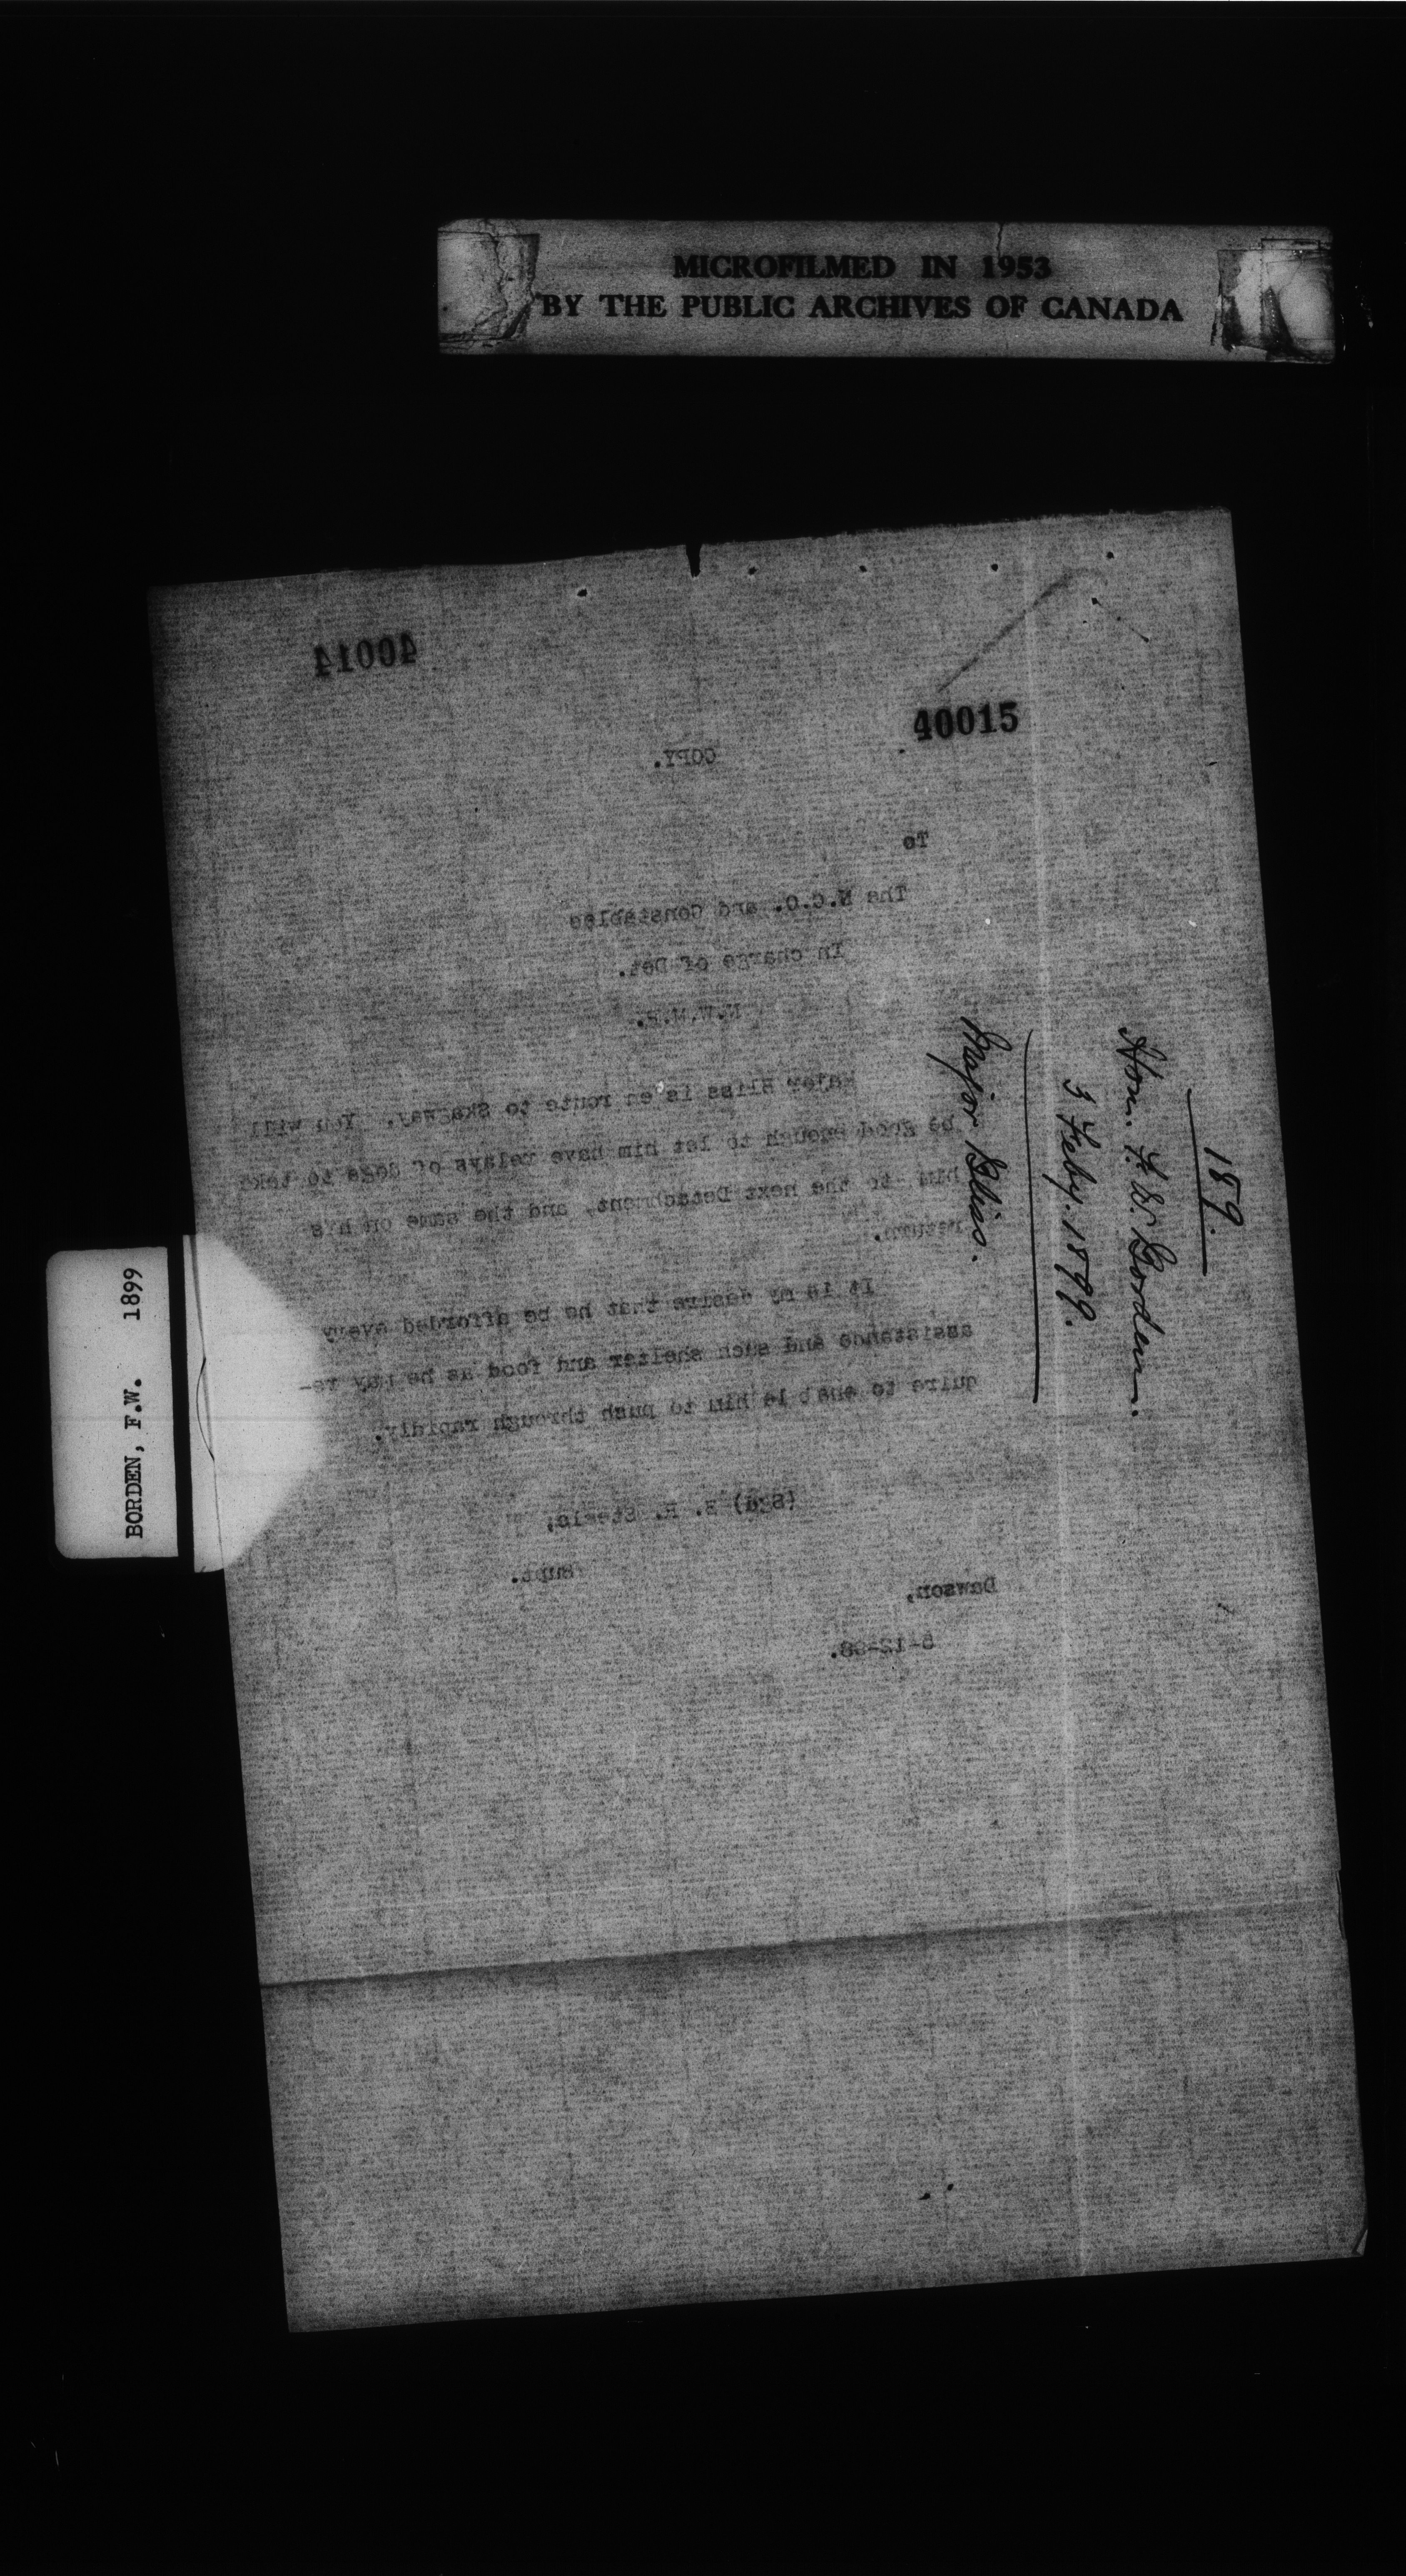 MICROFILMED IN 1953
BY THE PUBLIC ARCHIVES OF CANADA
40014
40015
COPY.
To
The N.C.O. and Constables
In charge of Det.
N.W.M.P.
Major Bliss is en route to Skagway. You will
be good enough to let him have relays of dogs to take
him to the next Detachment, and the same on his
return.
It is my desire that he be afforded every
assistance and such shelter and food as he may re-
quire to enable him to push through rapidly.
(Sgd) Steele,
Supt.
Dawson,
189.
Hon. F. W. Borden.
3 Feby. 1899.
Major Bliss.
BORDEN, F.W. 1899